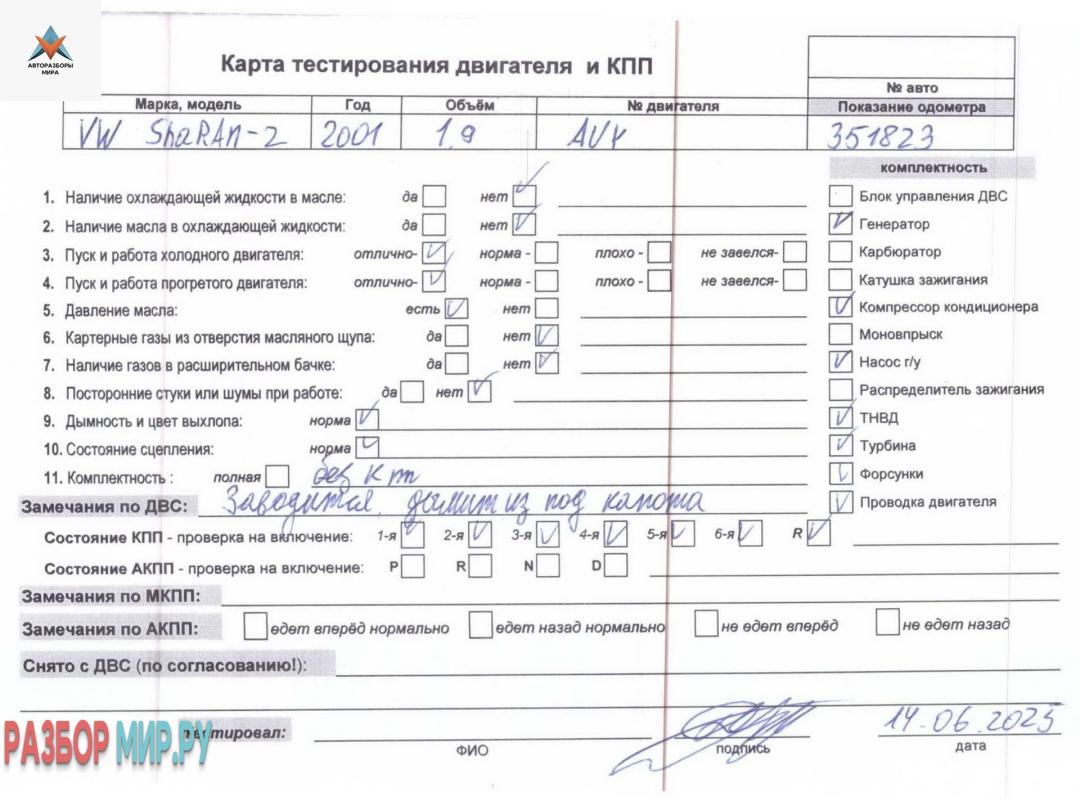 АВТОРАЗБОРЫ
МИРА
Карта тестирования двигателя и КПП
№ авто
Марка, модель Год Объём № двигателя Показание одометра
VW ShaRAn-2 2001 1.9 AUY 351823
комплектность
1. Наличие охлаждающей жидкости в масле: да нет Блок управления ДВС
2. Наличие масла в охлаждающей жидкости: да нет Генератор
3. Пуск и работа холодного двигателя: отлично- норма - плохо - не завелся- Карбюратор
4. Пуск и работа прогретого двигателя: отлично- норма - плохо - не завелся- Катушка зажигания
5. Давление масла: есть нет Компрессор кондиционера
6. Картерные газы из отверстия масляного щупа: да нет Моновпрыск
7. Наличие газов в расширительном бачке: да нет Насос г/у
8. Посторонние стуки или шумы при работе: да нет Распределитель зажигания
9. Дымность и цвет выхлопа: норма ТНВД
10. Состояние сцепления: норма Турбина
11. Комплектность : полная без кпп Форсунки
Замечания по ДВС: Заводится, дымит из под капота Проводка двигателя
Состояние КПП - проверка на включение: 1-я 2-я 3-я 4-я 5-я 6-я R
Состояние АКПП - проверка на включение: P R N D
Замечания по МКПП:
Замечания по АКПП: едет вперёд нормально едет назад нормально не едет вперёд не едет назад
Снято с ДВС (по согласованию!):
РАЗБОРМИР.РУ тестировал: 14.06.2025
ФИО подпись дата